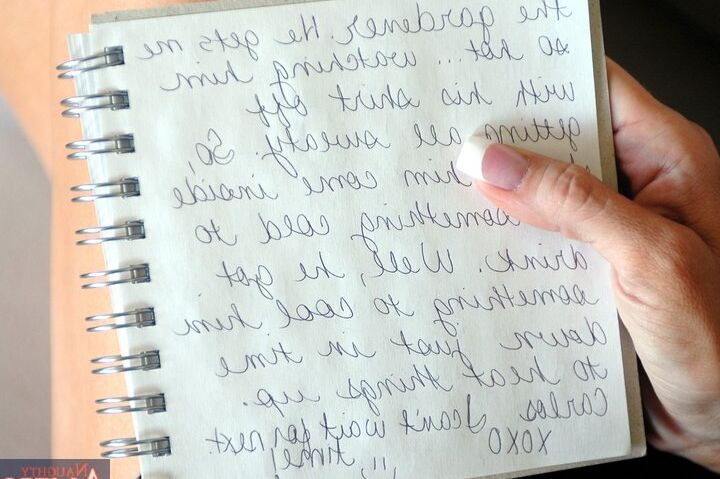 the gardener. He gets me
so hot... watching him
with his shirt off
getting all sweaty. So,
him come inside
something cold to
drink. Well, he got
something to cool him
down just in time
to heat things up.
Carlos I can't wait for next
time!
XOXO
NAUGHTY